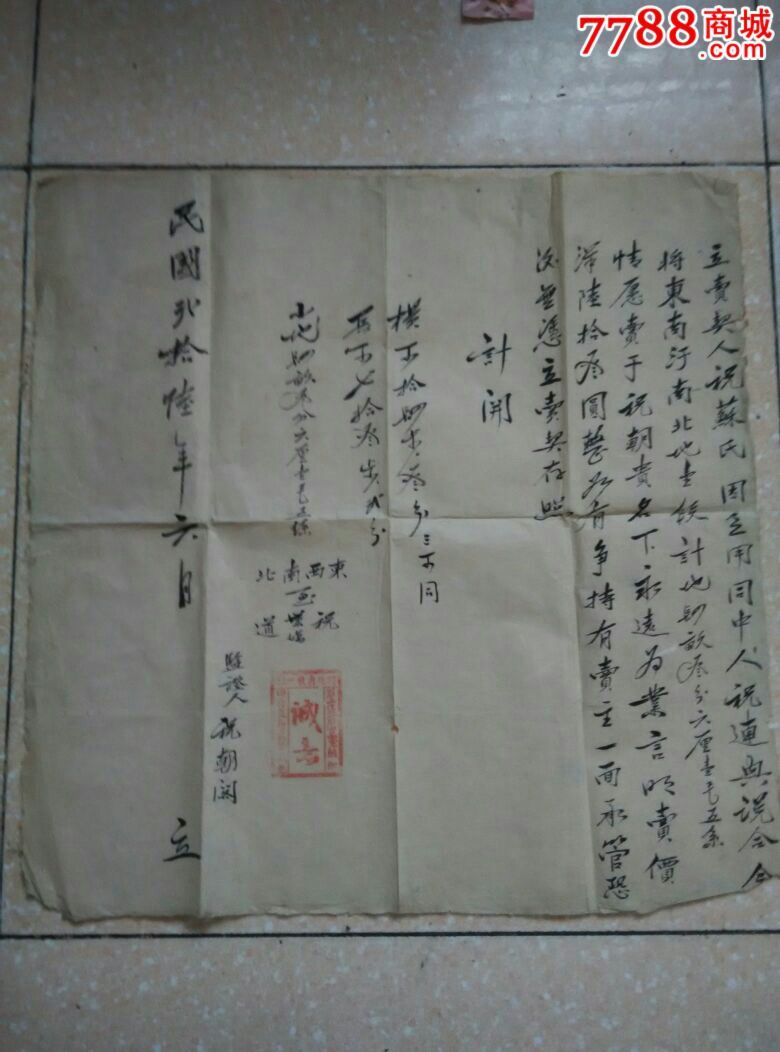 7788商城
.com
立賣契人祝蘇氏因乏用同中人祝連興説合今
將東南汙南北地壹段計地四畝叁分六厘壹毛五系
情愿賣于祝朝貴名下永遠為業言明賣價
洋陸拾叁圓整如有争持有賣主一面承管恐
後無憑立賣契存照
計開
横下拾四步叁分三下同
長下七拾叁步弍分
地四畝叁分六厘壹毛五絲
東西南北
祝
道
誠
監證人祝朝闲
民國弍拾陸年六月 立